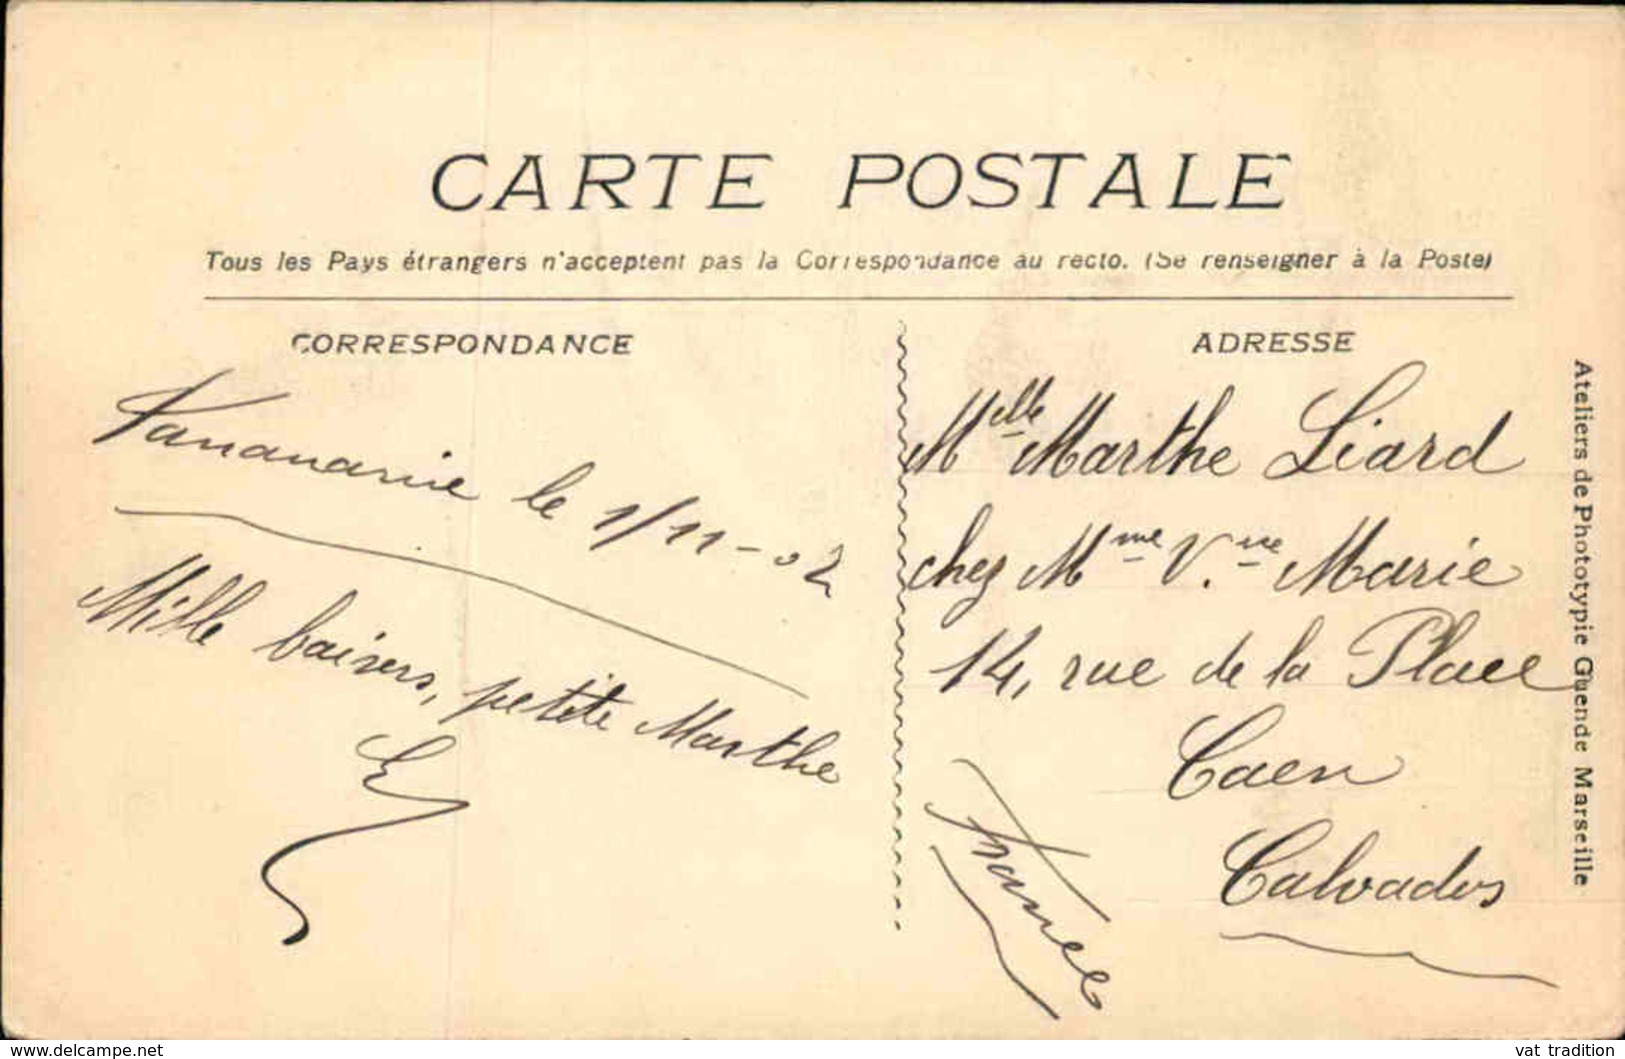 CARTE POSTALE
Tous les Pays étrangers n'acceptent pas la Correspondance au recto. (Se renseigner à la Poste)
CORRESPONDANCE
Tananarive le 1/11-02
Mille baisers, petite Marthe
ADRESSE
Mlle Marthe Liard
chez Mme Vve Marie
14, rue de la Place
Caen
Calvados
France
Ateliers de Phototypie Guende Marseille
www.delcampe.net
vat_tradition